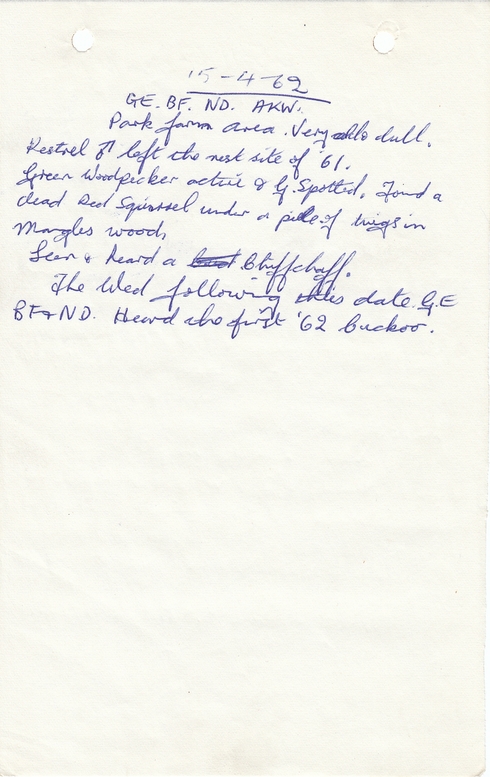 15-4-62
GE. BF. ND. AKW.
Park farm area. Very dull.
Kestrel ♂ left the nest site of '61.
Green Woodpecker active & G. Spotted. Found a
dead Red Squirrel under a pile of twigs in
Mangles wood,
Seen & Heard a Chiffchaff.
The Wed following this date. G.E
BF & ND. Heard the first '62 Cuckoo.